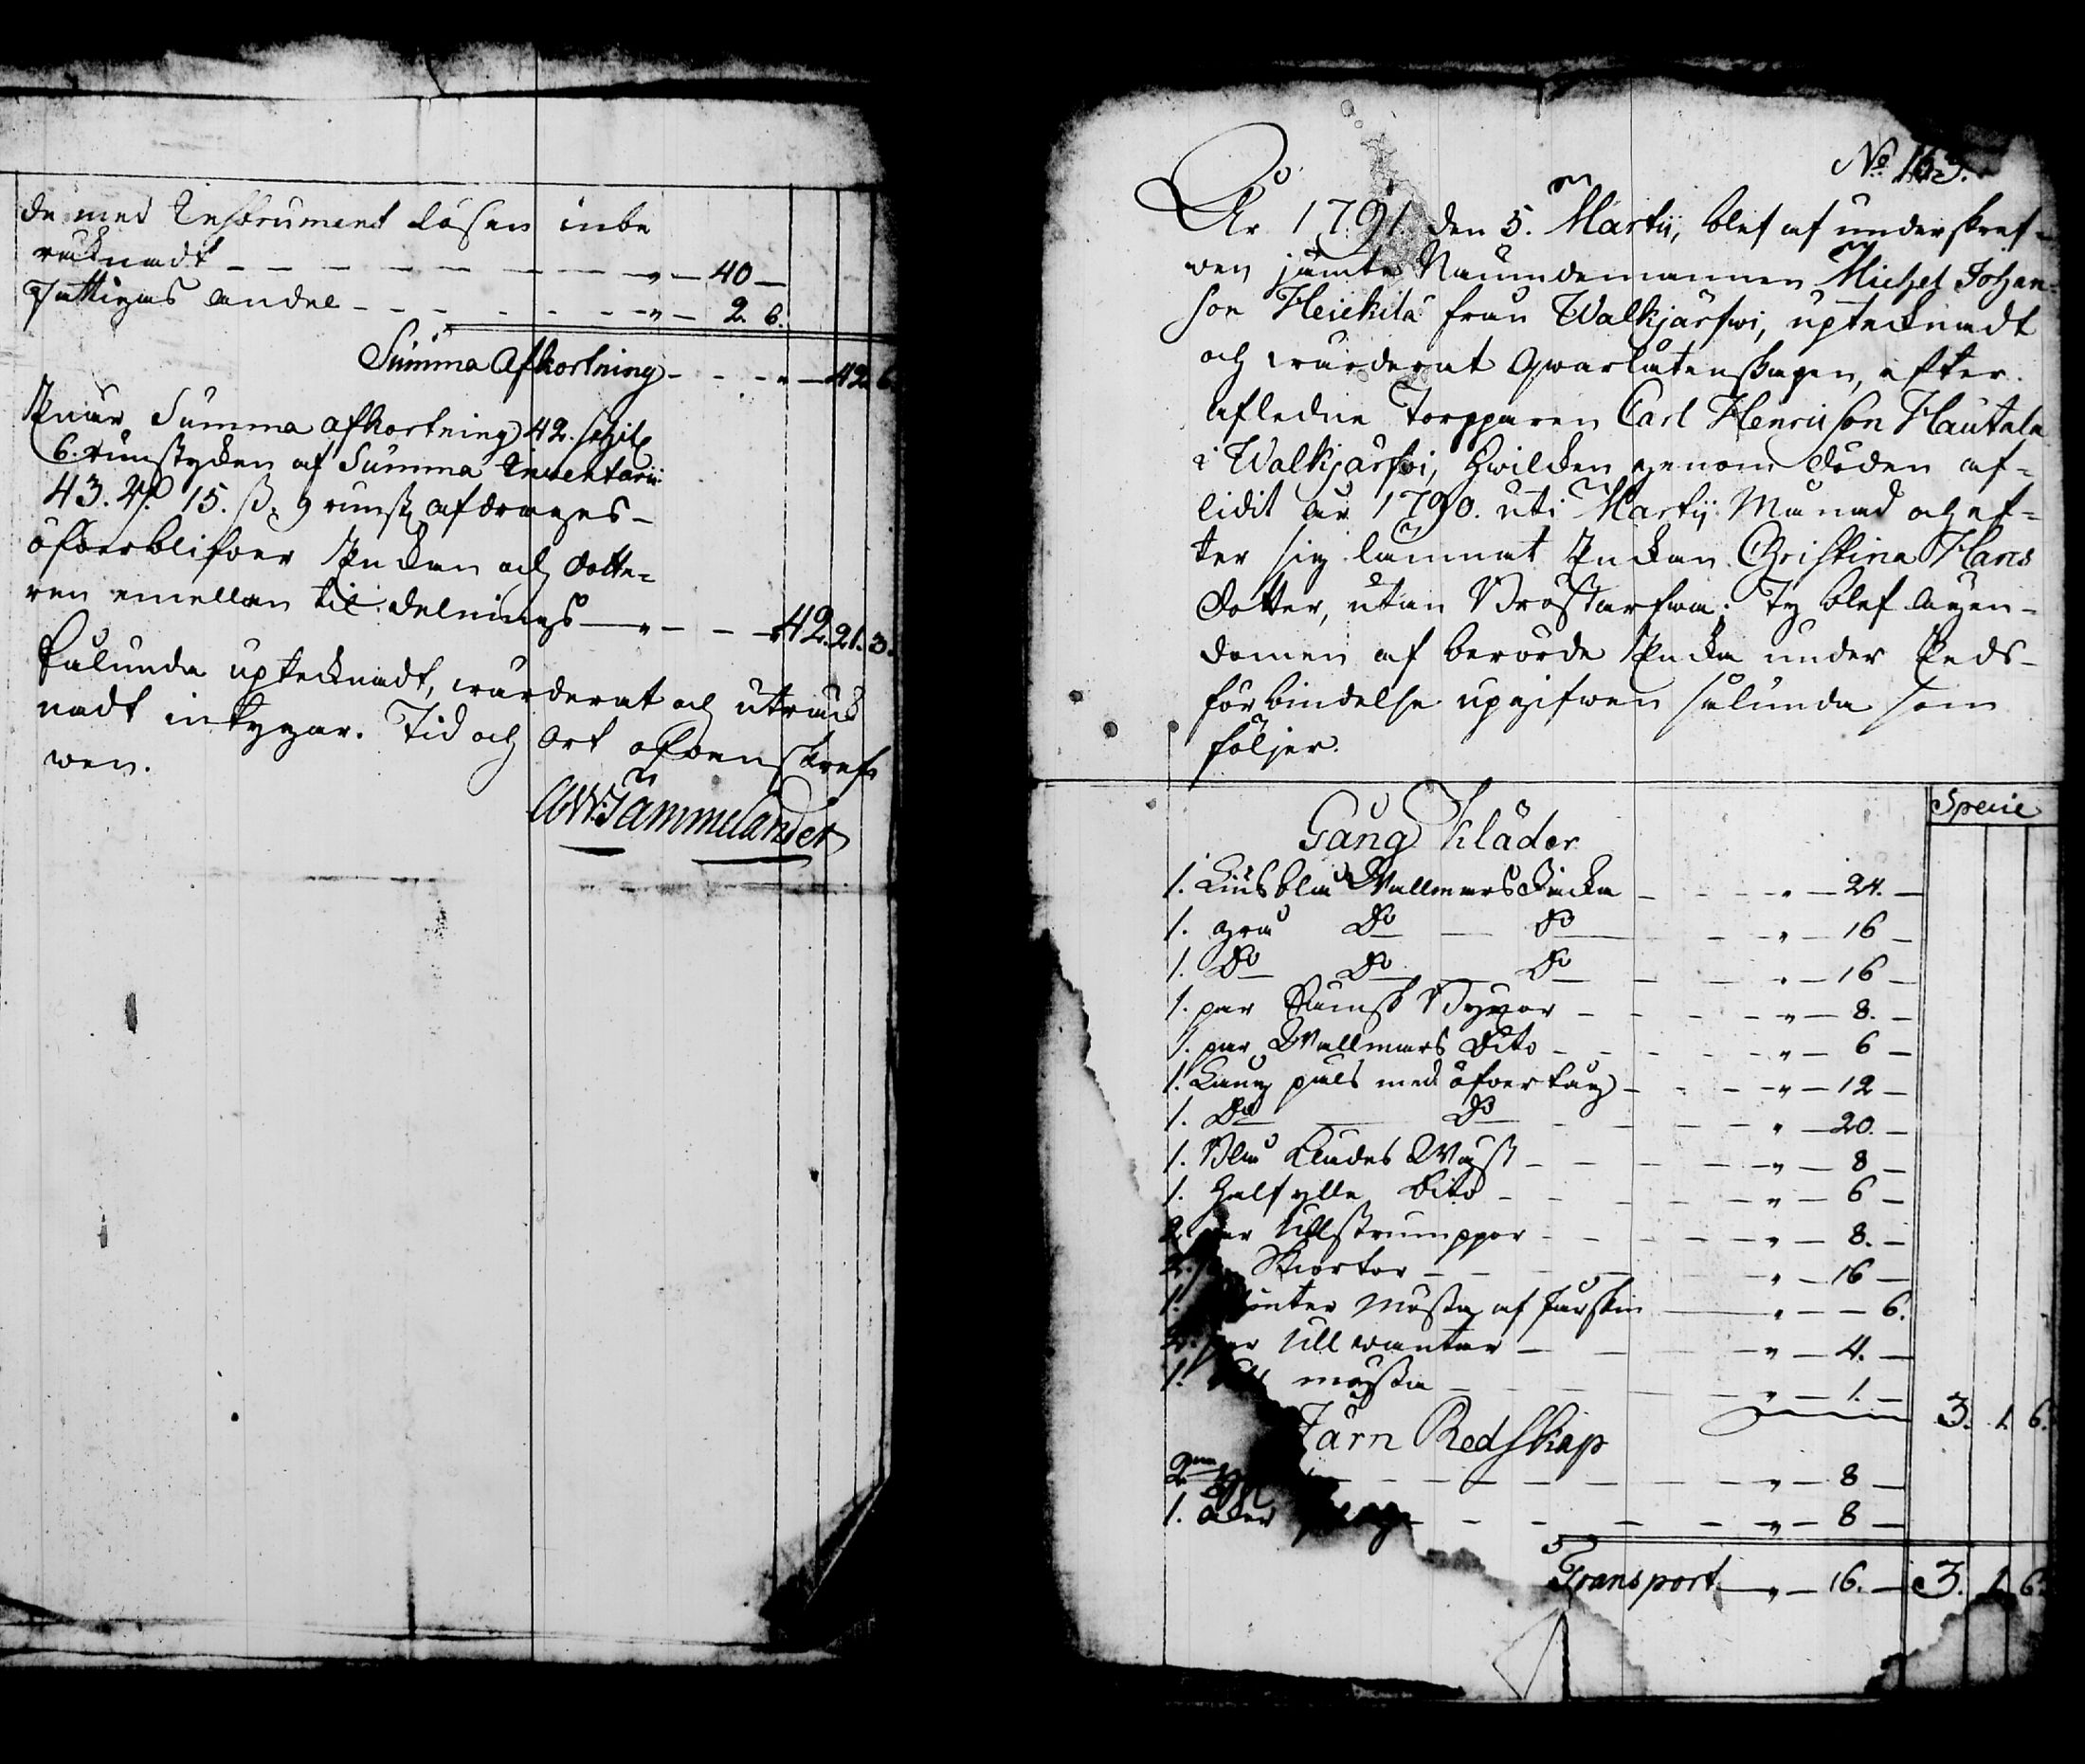 de med Instrument lösen inbe
räknadt — — — " — 40 —
Fattigas andel — — — " — 2. 6.
Summa Afkortning — — " — 42. 6
När Summa afkortning 42. schil
6. runstyken af Summa Inventarii
43. Rd 15. ß. 9 runst afdrages —
öfverblifver Enckan och dotte=
ren emellan til delnings — " — — 42. 21. 3.
Sålunda uptecknadt, wärderat och uträck
nadt intygar. Tid och Ort ofvanskref
wen.
Tammelander
No 163.
År 1791. den 5. Martii, blef af underskref=
ven jämte Nämndemannen Michel Johan=
son Heickilä från Walkjärfwi, uptecknadt
och wärderat Qvarlåtenskapen, efter
afledne Torpparen Carl Henricson Hautala
i Walkjärfwi, hwilcken genom döden af=
lidit år 1790. uti Martii Månad och ef=
ter sig lämnat Enckan Christina Hans
dotter, utan Bröstarfwa; Ty blef Egen-
domen af berörde Encka under Eds-
förbindelse upgifwen sålunda som
följer.
Specie
Gång Kläder
1. Liusblå Wallmars Jacka — — " — 24. —
1. grå Do — Do — " — 16 —
1. Do Do Do — — " — 16 —
1. par Sämsk Byxor — — " — 8. —
1. par Wallmars Dito — — " — 6 —
1. Lång päls med öfvertyg — — " — 12 —
1. Do Do — — " — 20. —
1. Blå Klädes Wäst — — " — 8 —
1. Halfylle Dito — — " — 6 —
2. par Ullstrumppor — — " — 8. —
2. Skiortor — — " — 16 —
1. Winter Mössa af fårskin — " — — 6.
2. par Ull wantar — — " — 4. —
1. mössa — — " — 1. —
3. 1. 6.
Järn Redskap
2 — — " — 8 —
1. åker — — " — 8 —
Transport — " — 16. — 3. 1. 6.